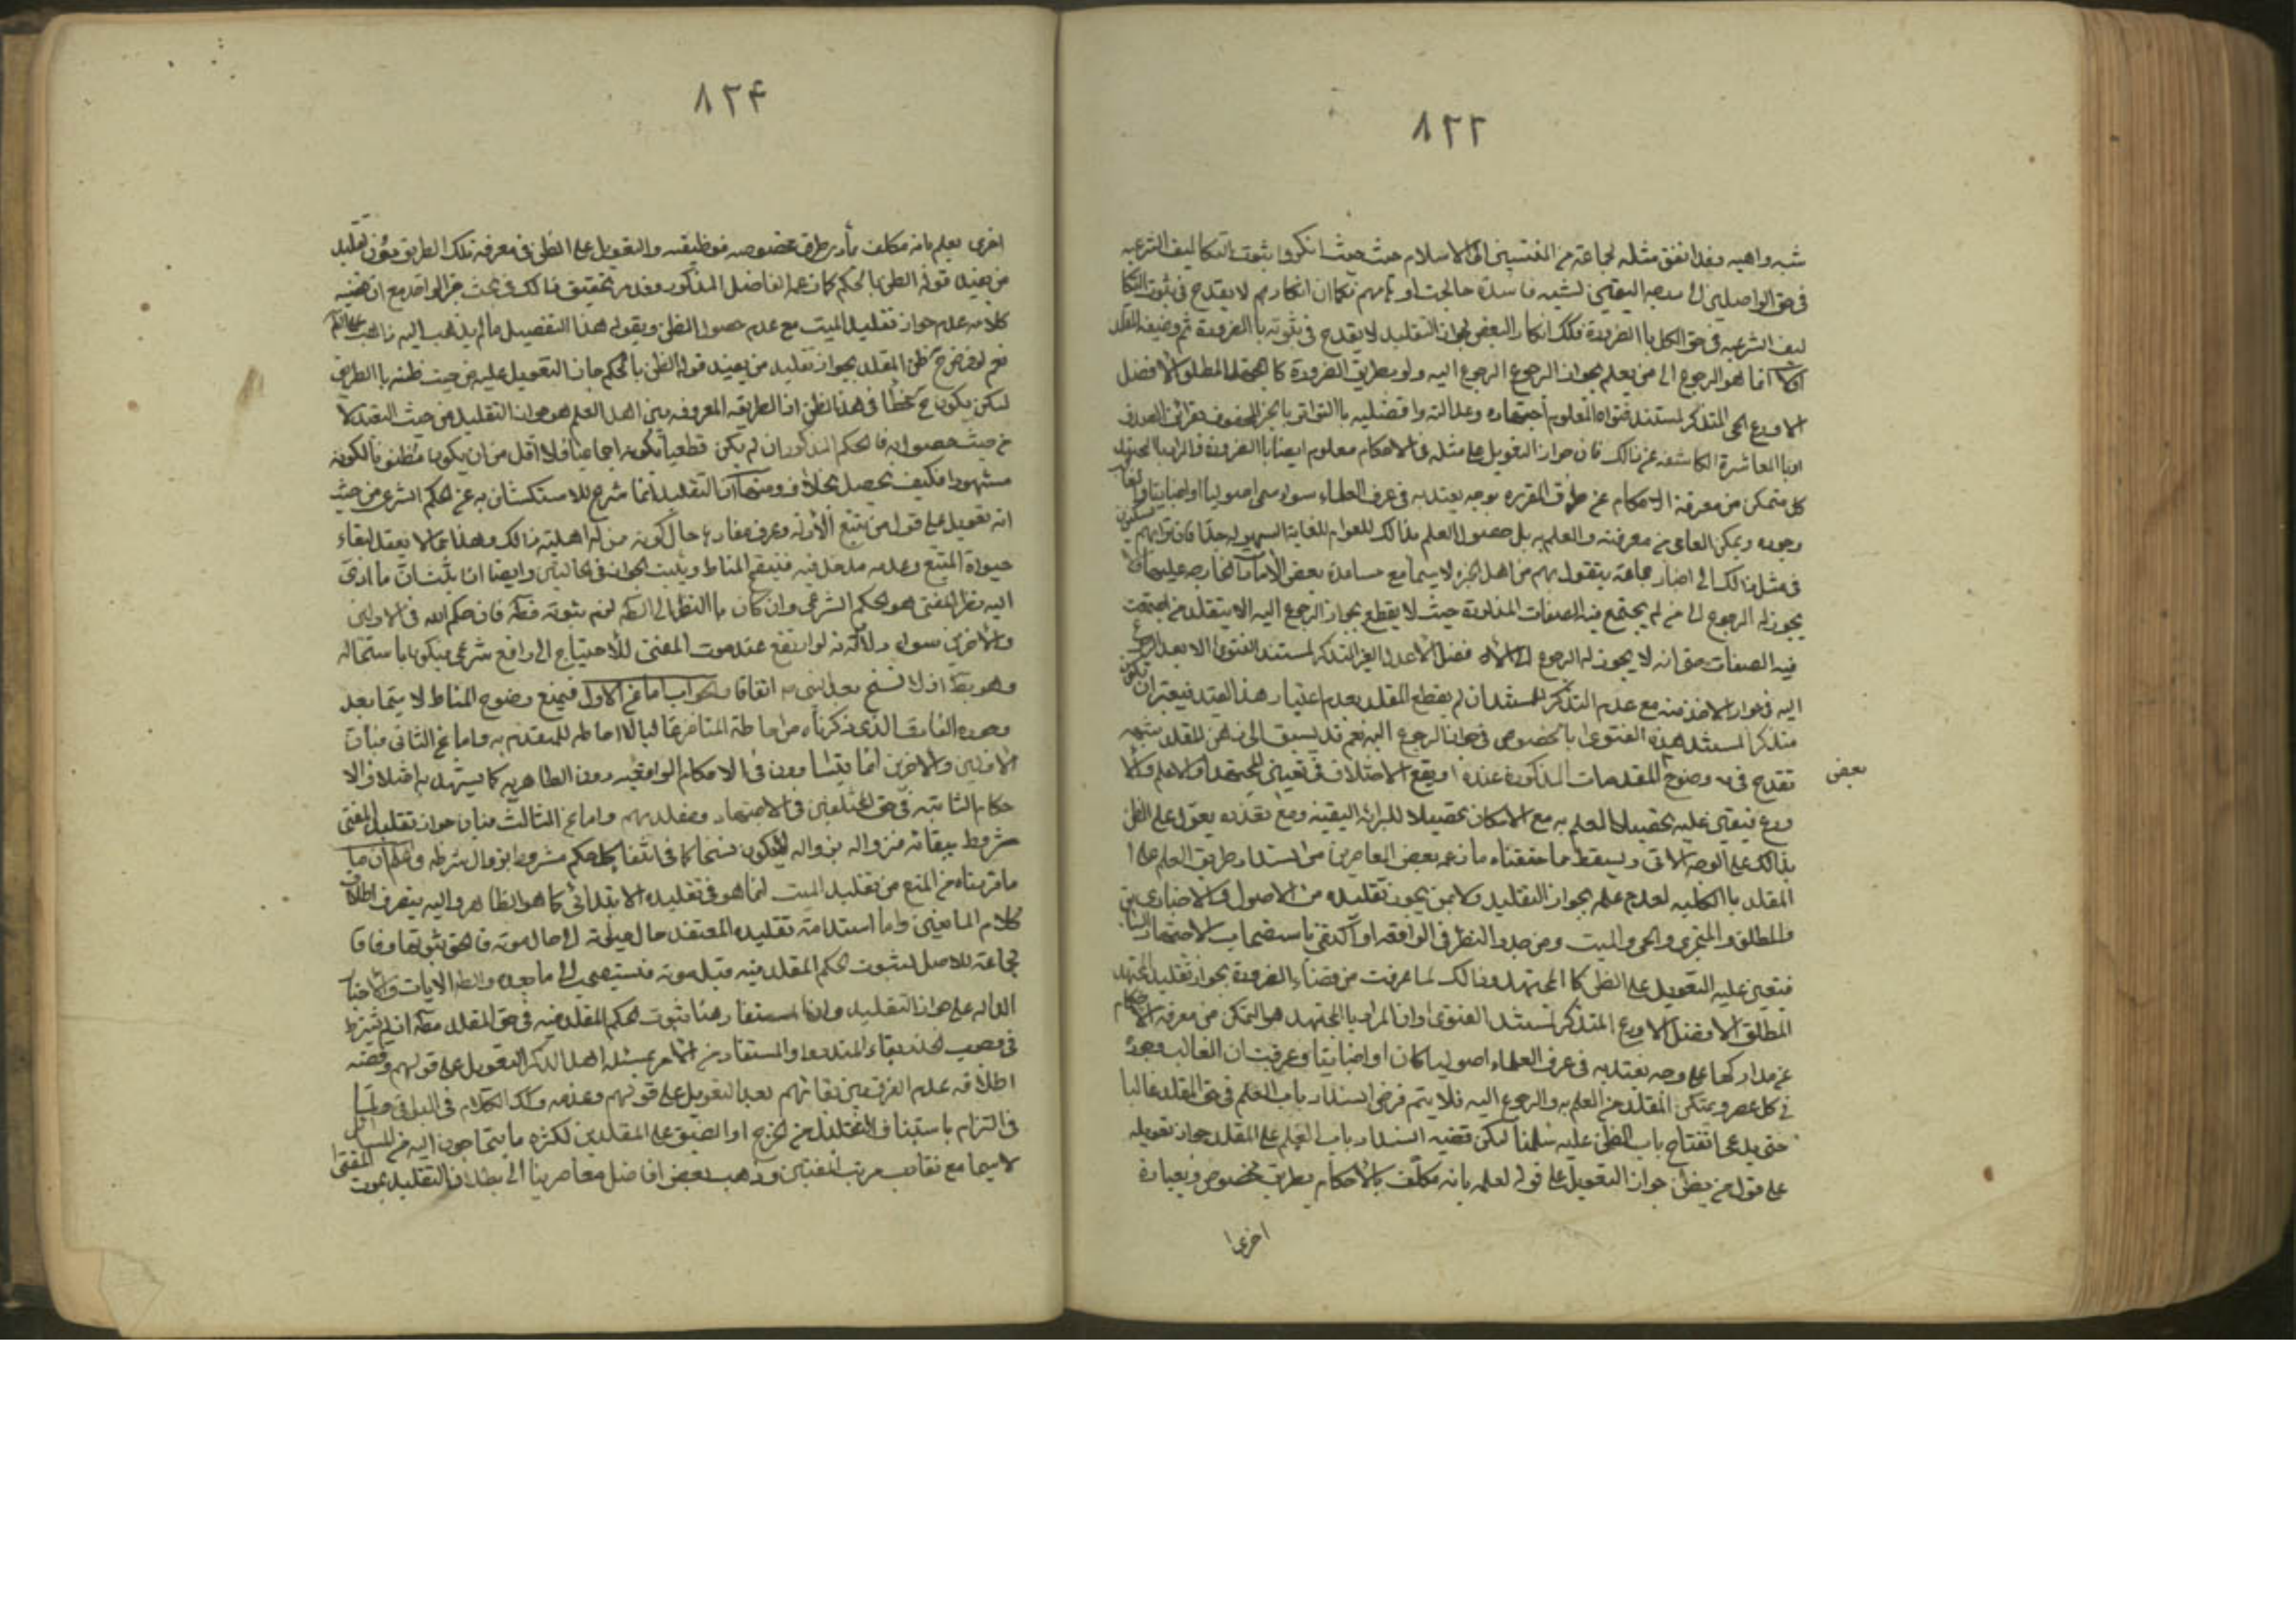 ٨٢٣
شبه واهيه وقد اتفق مثله لجماعة من المنتسبين الى الاسلام حيث انكروا ثبوت التكاليف الشرعيه
فى حق الواصلين الى مرتبة اليقين لشبه فاسدة فكما ان انكارهم لا يقدح فى ثبوت التكا
ليف الشرعيه فى حق الكل باالضرورة فكك انكار البعض لجواز التقليد لا يقدح فى ثبوته باالضرورة ثم وظيفة المقلد
اولا انما هو الرجوع الى من يعلم بجواز الرجوع اليه ولو بطريق الضرورة كا المجتهد المطلق الافضل
الاورع الحى المتذكر لمستند فتواه المعلوم اجتهاده وعدالته وافضليته باالتواتر باالخبر المحفوف بقرائن الصدق
او باالمعاشرة الكاشفه عن ذالك فان جواز التعويل على مثله فى الاحكام معلوم ايضا باالضرورة والمراد باالمجتهد
كل متمكن من معرفة الاحكام عن طرق المقرره بوجه يعتد به فى عرف العلماء سواء سمى اصوليا او اخباريا
وجوده ويمكن العامى من معرفته والعلم به بل حصول العلم بذالك للعوام للغاية السهوله جدا فان تراهم يسكنون
فى مثل ذالك الى اخبار جماعة يثقون بهم من اهل الخبره لا سيما مع مساعدة بعض الامارات الخارجه عليه
يجوز له الرجوع الى من لم يجتمع فيه الصفات المذكورة حيث لا يقطع بجواز الرجوع اليه الا بتقليد من اجتمعت
فيه الصفات حتى انه لا يجوز له الرجوع الى الافضل الاعدل الغير المتذكر لمستند الفتوى الا بعد الرجوع
اليه فى جواز الاخذ منه مع عدم التذكر للمستند ان لم يقطع المقلد بعدم اعتبار هذا القيد فيعتبر ان يكون
متذكرا لمستند هذه الفتوى باالخصوص فى جواز الرجوع اليه نعم قد يسبق الى ذهن المقلد شبهه
تقدح فى وضوح بعض المقدمات المذكورة عنده او يقع الاختلاف فى تعيين المجتهد او الاعلم والا
ورع فيتعين عليه تحصيل العلم به مع الامكان تحصيلا للبرائه اليقينيه ومع تعذره يعول على الظن
بذالك على الوجه الاتى ويسقط مما حققناه ما زعمه بعض المعاصرين من انسداد طريق العلم على
المقلد باالكليه لعدم علمه بجواز التقليد ولا بمن يجوز تقليده من الاصولى والاخبارى
والمطلق والمتجزى والحى والميت ومن جدد النظر فى الواقعه او اكتفى باستصحاب الاجتهاد السابق
فيتعين عليه التعويل على الظن كا المجتهد وذالك لما عرفت من قضاء الضرورة بجواز تقليد المجتهد
المطلق الافضل الاورع المتذكر لمستند الفتوى وان المراد باالمجتهد هو المتمكن من معرفة الاحكام
عن مداركها على وجه يعتد به فى عرف العلماء اصوليا كان او اخباريا وعرفت ان الغالب وجوده
فى كل عصر ويتمكن المقلد من العلم به والرجوع اليه فلا يتم فرض انسداد باب العلم فى حق المقلد غالبا
حتى يدعى انفتاح باب الظن عليه سلمنا لكن قضيه انسداد باب العلم على المقلد جواز تعويله
على قول من يظن جواز التعويل على قوله لعلمه بانه مكلف باالاحكام بطريق مخصوص وبعبارة
اخرى
بعض
٨٢۴
اخرى يعلم بانه مكلف بأدريطرق مخصوصه فوظيفته والتعويل على الظن فى معرفة تلك الطريق دون تقليد
من يفيد قوله الظن باالحكم كما زعمه الفاضل المذكور وقد مر تحقيق ذالك فى بحث خبر الواحد مع ان قضيه
كلامه عدم جواز تقليد الميت مع عدم حصول الظن وبقوله هذا التفصيل مما لم يذهب اليه ذاهب
نعم لو فرض ح ظن المقلد بجواز تقليد من يفيد قوله الظن باالحكم جاز التعويل عليه من حيث ظنه باالطريق
لكن يكون ح مخطأ فى هذا الظن اذ الطريقه المعروفه بين اهل العلم هو جواز التقليد من حيث التعبد لا
من حيث حصول فالحكم المذكور ان لم يكن قطعيا لكونه اجماعيا فلا اقل من ان يكون مظنونا لكونه
مشهورا فكيف يحصل بخلاف ومنها ان التقليد انما شرع للاستكشاف به عن الحكم الشرعى من حيث
انه تعويل على قول من يتتبع الادله وعرف مفادها حال كونه من له اهلية ذالك وهذا مما لا يعقل لبقاء
حيوة المتتبع وعدمه مدخل فيه فتنقح المناط ويثبت الجواز فى الحالتين وايضا اذا ثبت ان ما ادى
اليه نظر المفتى هو الحكم الشرعى وان كان باالنظر الى الظاهر لزم ثبوته مطلقا فان حكم الله فى الاولين
والاخرين سواء ولانه لو ارتفع عند موت المفتى للاحتياج الى رافع شرعى فيكون باستحاله
وهو بط اذ لا نسخ بعد النبى اتفاقا والجواب اما عن الاول فبمنع وضوح المناط لا سيما بعد
وجوده الفارق الذى ذكرناه من احاطة المتاخر غالبا لما لا احاطه للمتقدم به واما عن الثانى فبان
الاولين والاخرين انما يتساوون فى الاحكام الواقعيه دون الظاهريه كما يشهد به اختلاف الا
حكام الثابته فى حق المختلفين فى الاجتهاد ومقلديهم واما عن الثالث فبان جواز تقليد المفتى
مشروط ببقائه فزواله بزواله لا يكون نسخا كما فى انتفاء كل حكم مشروط بزوال شرطه واعلم ان ما
ما قررناه من المنع من تقليد الميت انما هو فى تقليده الابتدائى كما هو الظاهر واليه ينصرف اطلاق
كلام المانعين واما استدامة تقليده المعتقد حال حيوته الى حال موته فالحق ثبوتها وفاقا
لجماعة للاصل لثبوت الحكم المقلد فيه قبل موته فيستصحب الى ما بعده ولظاهر الايات والاخبار
الداله على جواز التقليد فان المستفاد منها ثبوت الحكم المقلد فيه فى حق المقلد مطلقا اذ لم يشترط
فى وجوب الحذر بقاء المنذر والمستفاد من الامر بمسئله اهل الذكر التعويل على قولهم وقضية
اطلاقه عدم الفرق بين بقائهم بعد التعويل على قولهم وعدمه وكذا الكلام فى البواقى
فى التزام باستيناف التقليد من الحرج او الضيق على المقلدين لكثرة ما يحتاجون اليه من المسائل
لا سيما مع تقارب موت المفتين وذهب بعض افاضل معاصرينا الى بطلان التقليد بموت المفتى